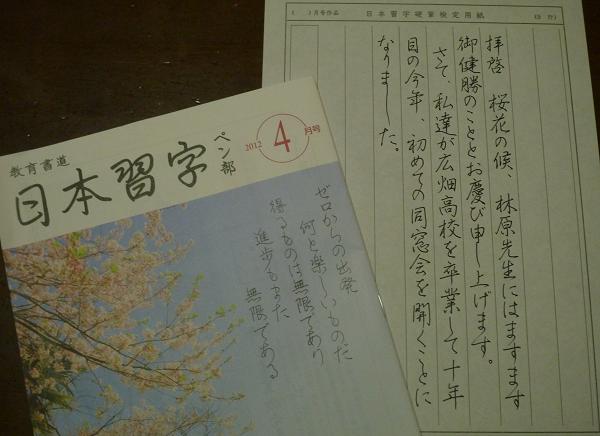 教育書道
日本習字
ペン部
2012
4
月号
ゼロからの出発
何と楽しいものだ
得るものは無限であり
進歩もまた
無限である
月号作品
日本習字硬筆検定用紙
拝啓 桜花の候、林原先生にはますます
御健勝のこととお慶び申し上げます。
さて、私達が広畑高校を卒業して十年
目の今年、初めての同窓会を開くことに
なりました。